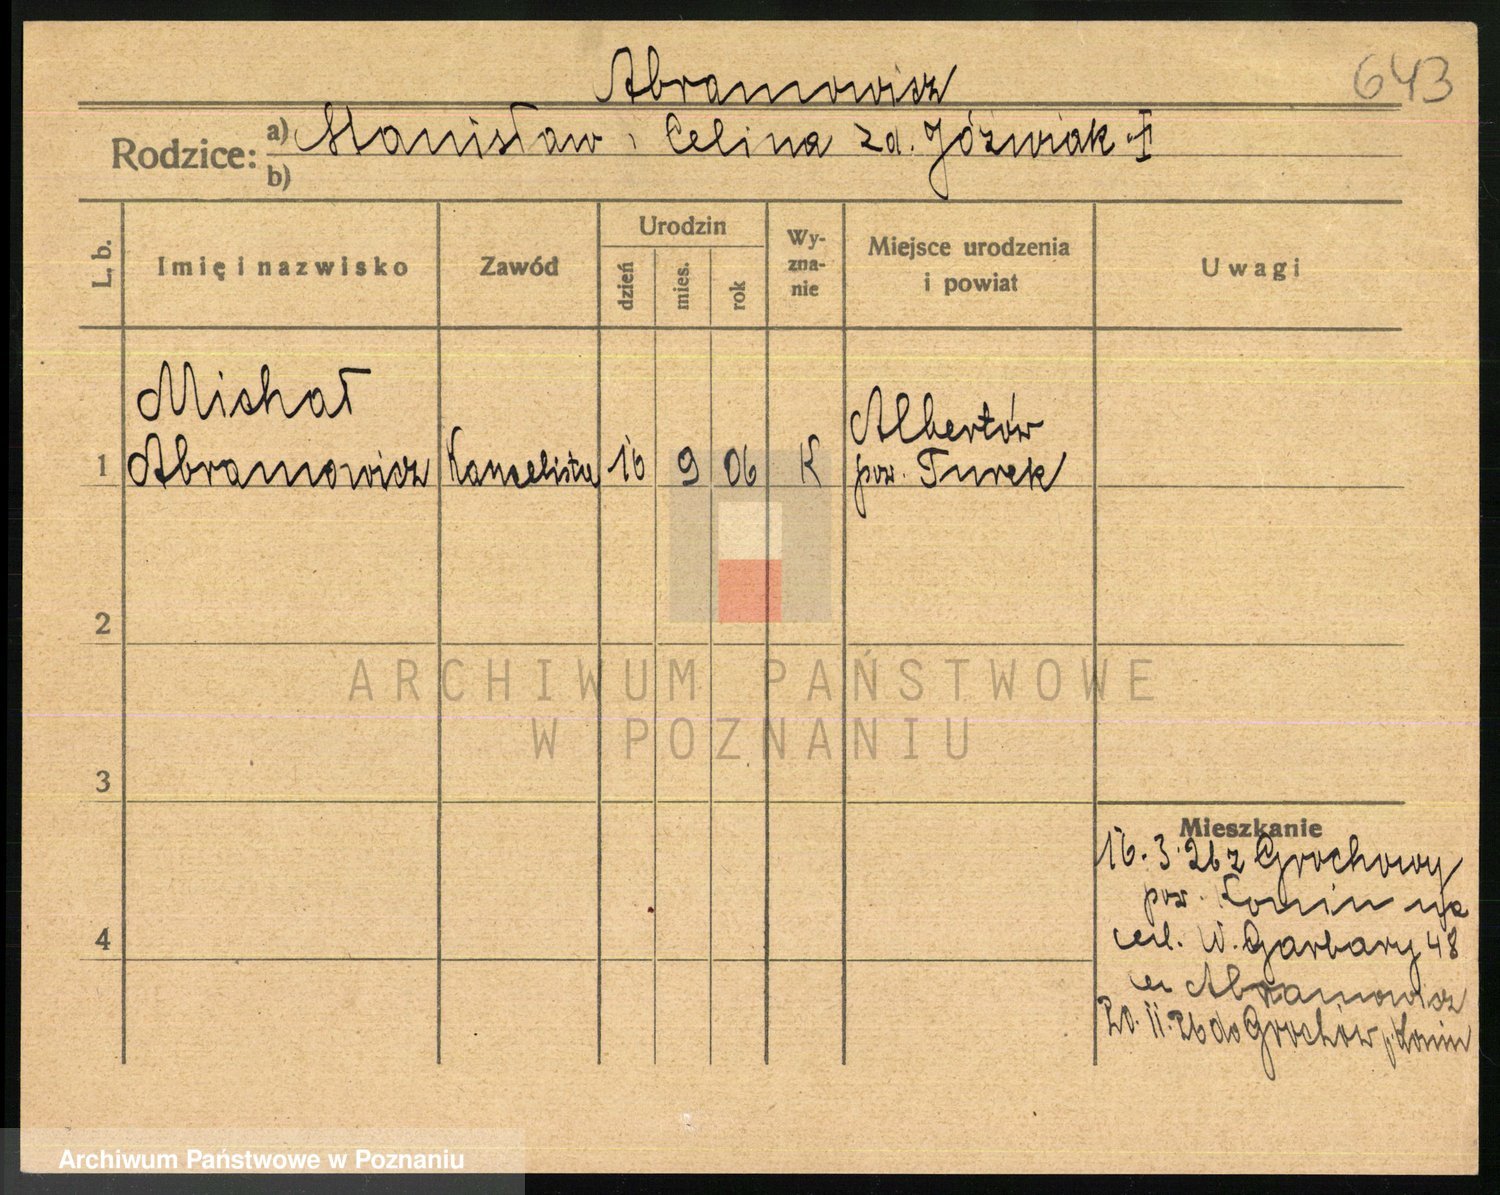 643
Abramowicz
Rodzice:
a) Stanisław i Celina zd. Jóźwiak
b)
L. b.
Imię i nazwisko
Zawód
Urodzin
dzień
mies.
rok
Wy-
zna-
nie
Miejsce urodzenia
i powiat
Uwagi
Michał
Albertów
1 Abramowicz Kancelista 16 9 06 K pow. Turek
2
3
4
Mieszkanie
16.3.26 z Grochowy
pow. Konin na
W. Garbary 48
Abramowicz
20.11.26 do Grochów p. Konin
ARCHIWUM PAŃSTWOWE
W POZNANIU
Archiwum Państwowe w Poznaniu